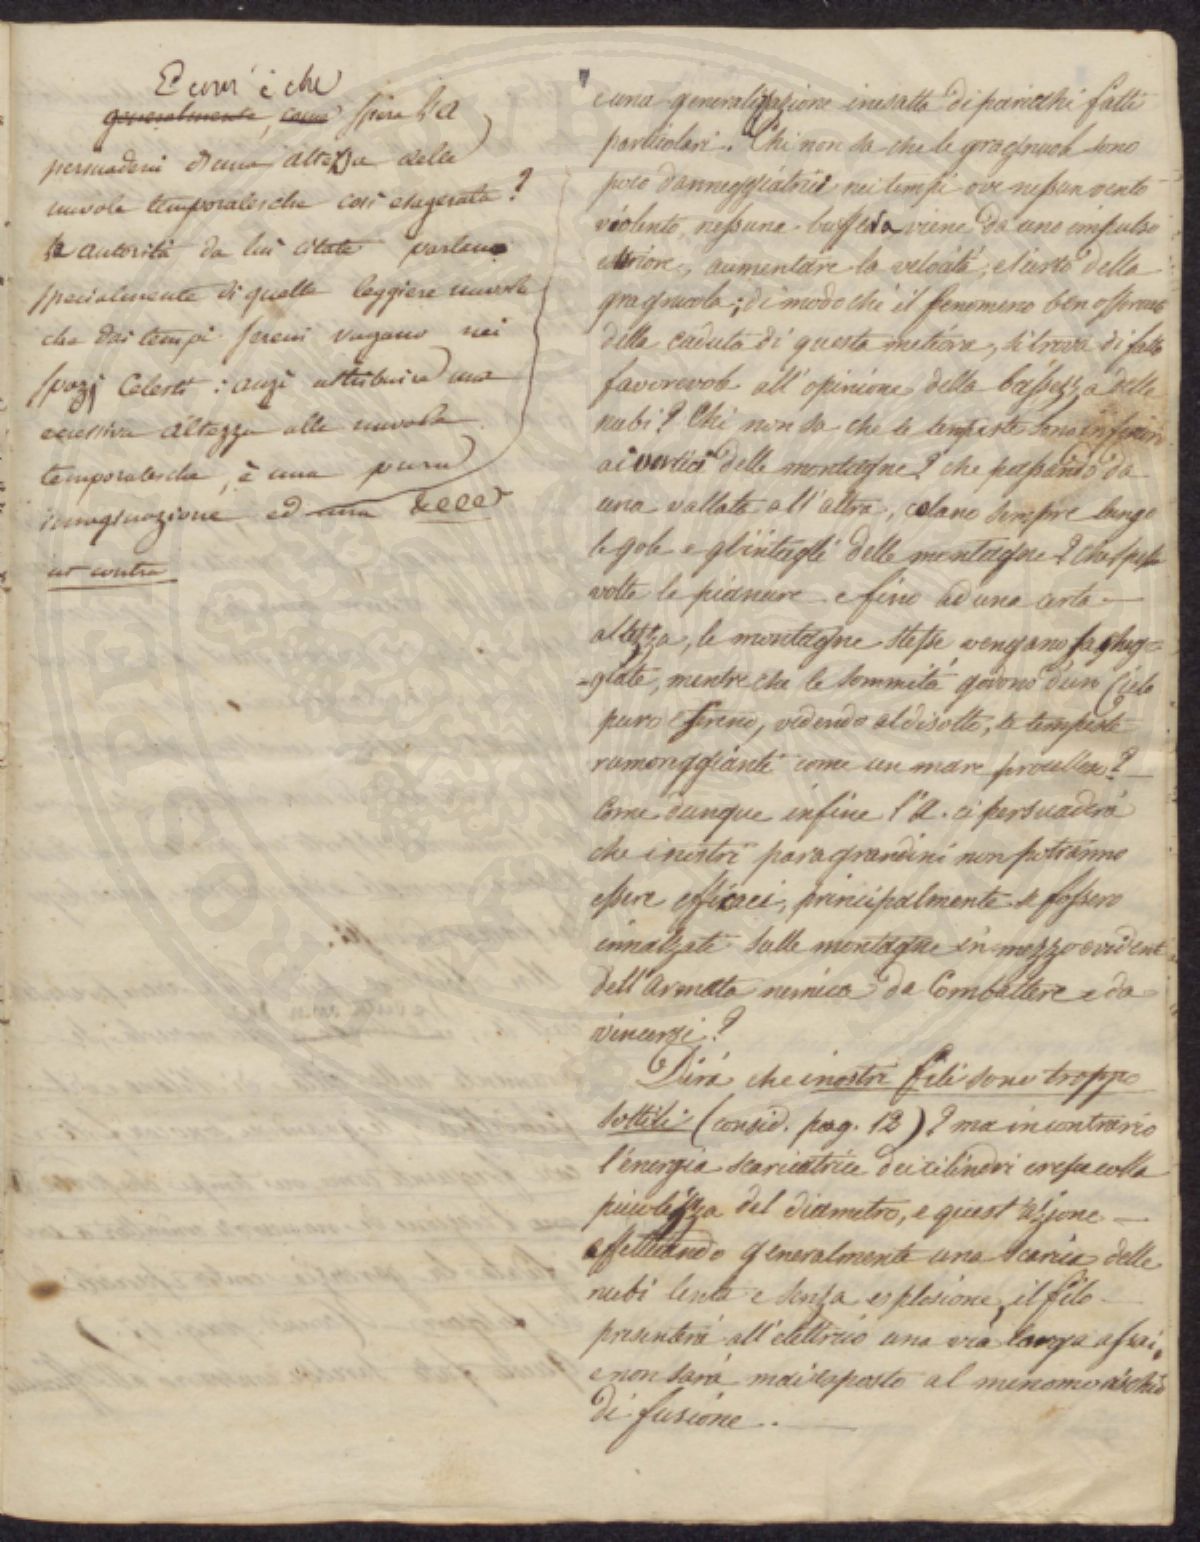 E com' è che
generalmente, come spera l'A
persuaderci d'una altezza delle
nuvole temporalesche così esagerata?
le autorità da lui citate parlano
specialmente di quelle leggiere nuvole
che dai tempi sereni vagano nei
spazj Celesti: anzi attribuire una
eccessiva altezza alle nuvole
temporalesche, è una pura
imaginazione ed una
in contra
e una generalizzazione inesatta di parecchi fatti
particolari. Chi non sa che le gragnuole sono
poco danneggiatrici nei tempi ove nessun vento
violento, nessuna buffera viene da uno impulso
esteriore, aumentare la velocità, e l'urto della
gragnuola; di modo che il fenomeno ben osservato
della caduta di questa meteora, si trova di fatto
favorevole all'opinione della bassezza delle
nubi? Chi non sa che le tempeste sono inferiori
ai vertici delle montagne? che passando da
una vallata all'altra, colano sempre lungo
le gole e gl'intagli delle montagne? che spesse
volte le pianure e fino ad una certa
altezza, le montagne stesse vengano
=giate, mentre che le sommità godono d'un Cielo
puro e sereno, vedendo al disotto, le tempeste
rumoreggianti come un mare procelloso?
Come dunque infine l'A. ci persuaderà
che i nostri paragrandini non potranno
essere efficaci, principalmente se fossero
innalzati sulle montagne in mezzo evidente
dell'armata nemica da Combattere e da
vincersi?
Dirà che i nostri fili sono troppo
sottili (consid. pag. 12)? ma in contrario
l'energia scaricatrice dei cilindri cresce colla
piccolezza del diametro, e quest'azione
effettuando generalmente una scarica delle
nubi lenta e senza esplosione, il filo
presenterà all'elettrico una via larga assai,
e non sarà mai esposto al menomo rischio
di fusione.